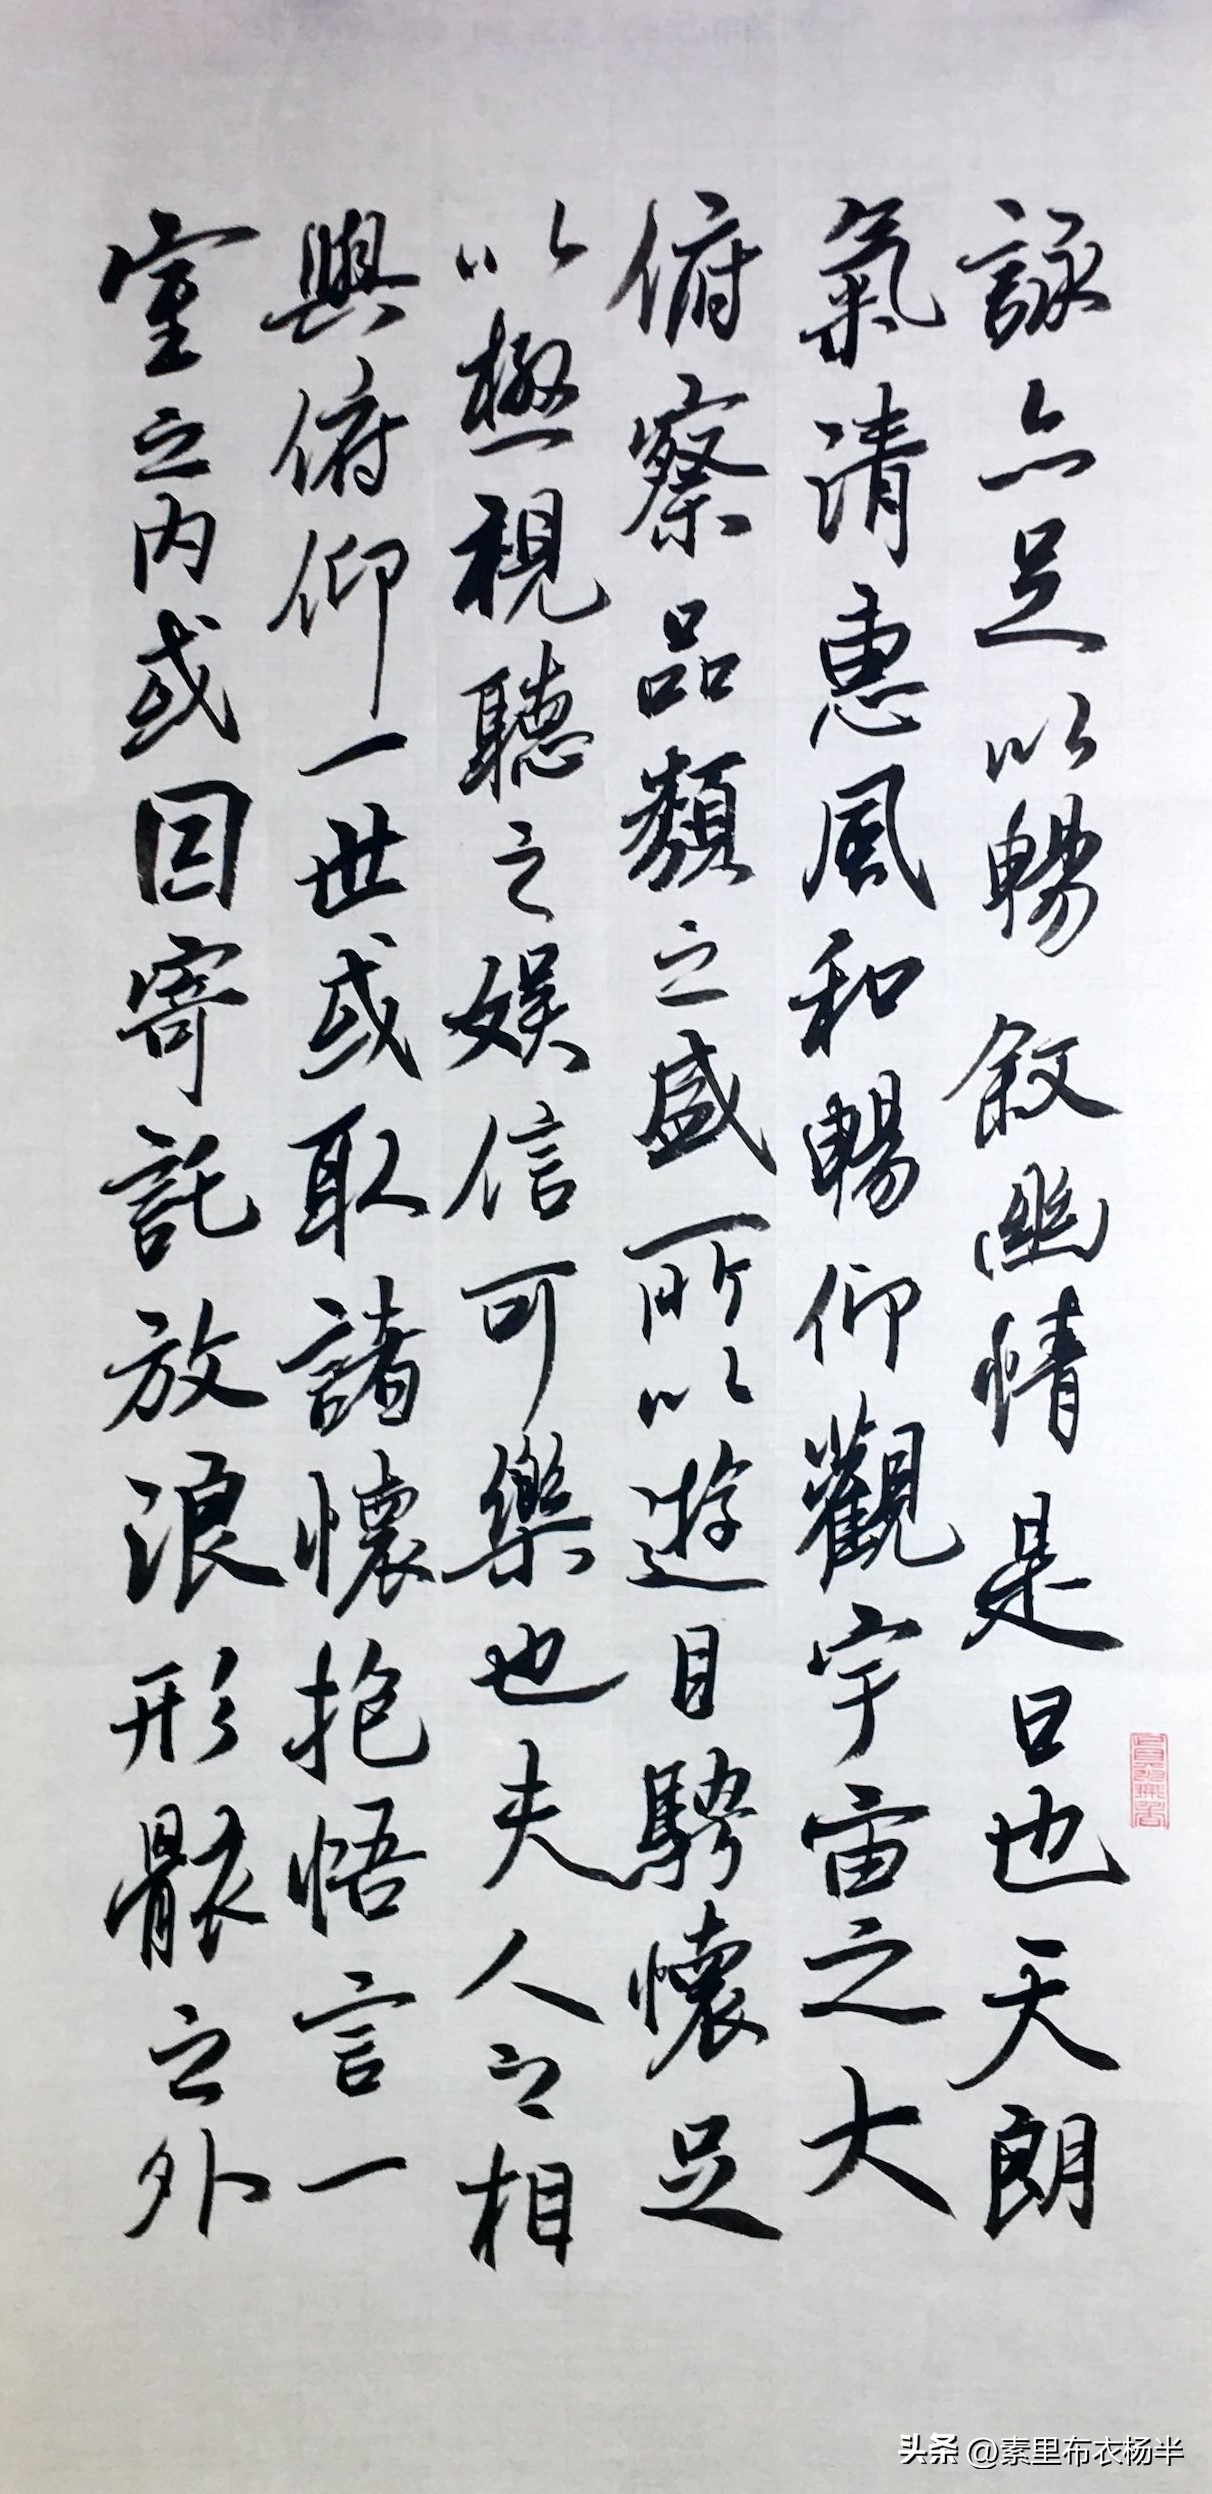 詠亦足以暢叙幽情是日也天朗
氣清惠風和暢仰觀宇宙之大
俯察品類之盛所以遊目騁懷足
以極視聽之娛信可樂也夫人之相
與俯仰一世或取諸懷抱悟言一
室之內或因寄託放浪形骸之外
头条 @素里布衣杨半